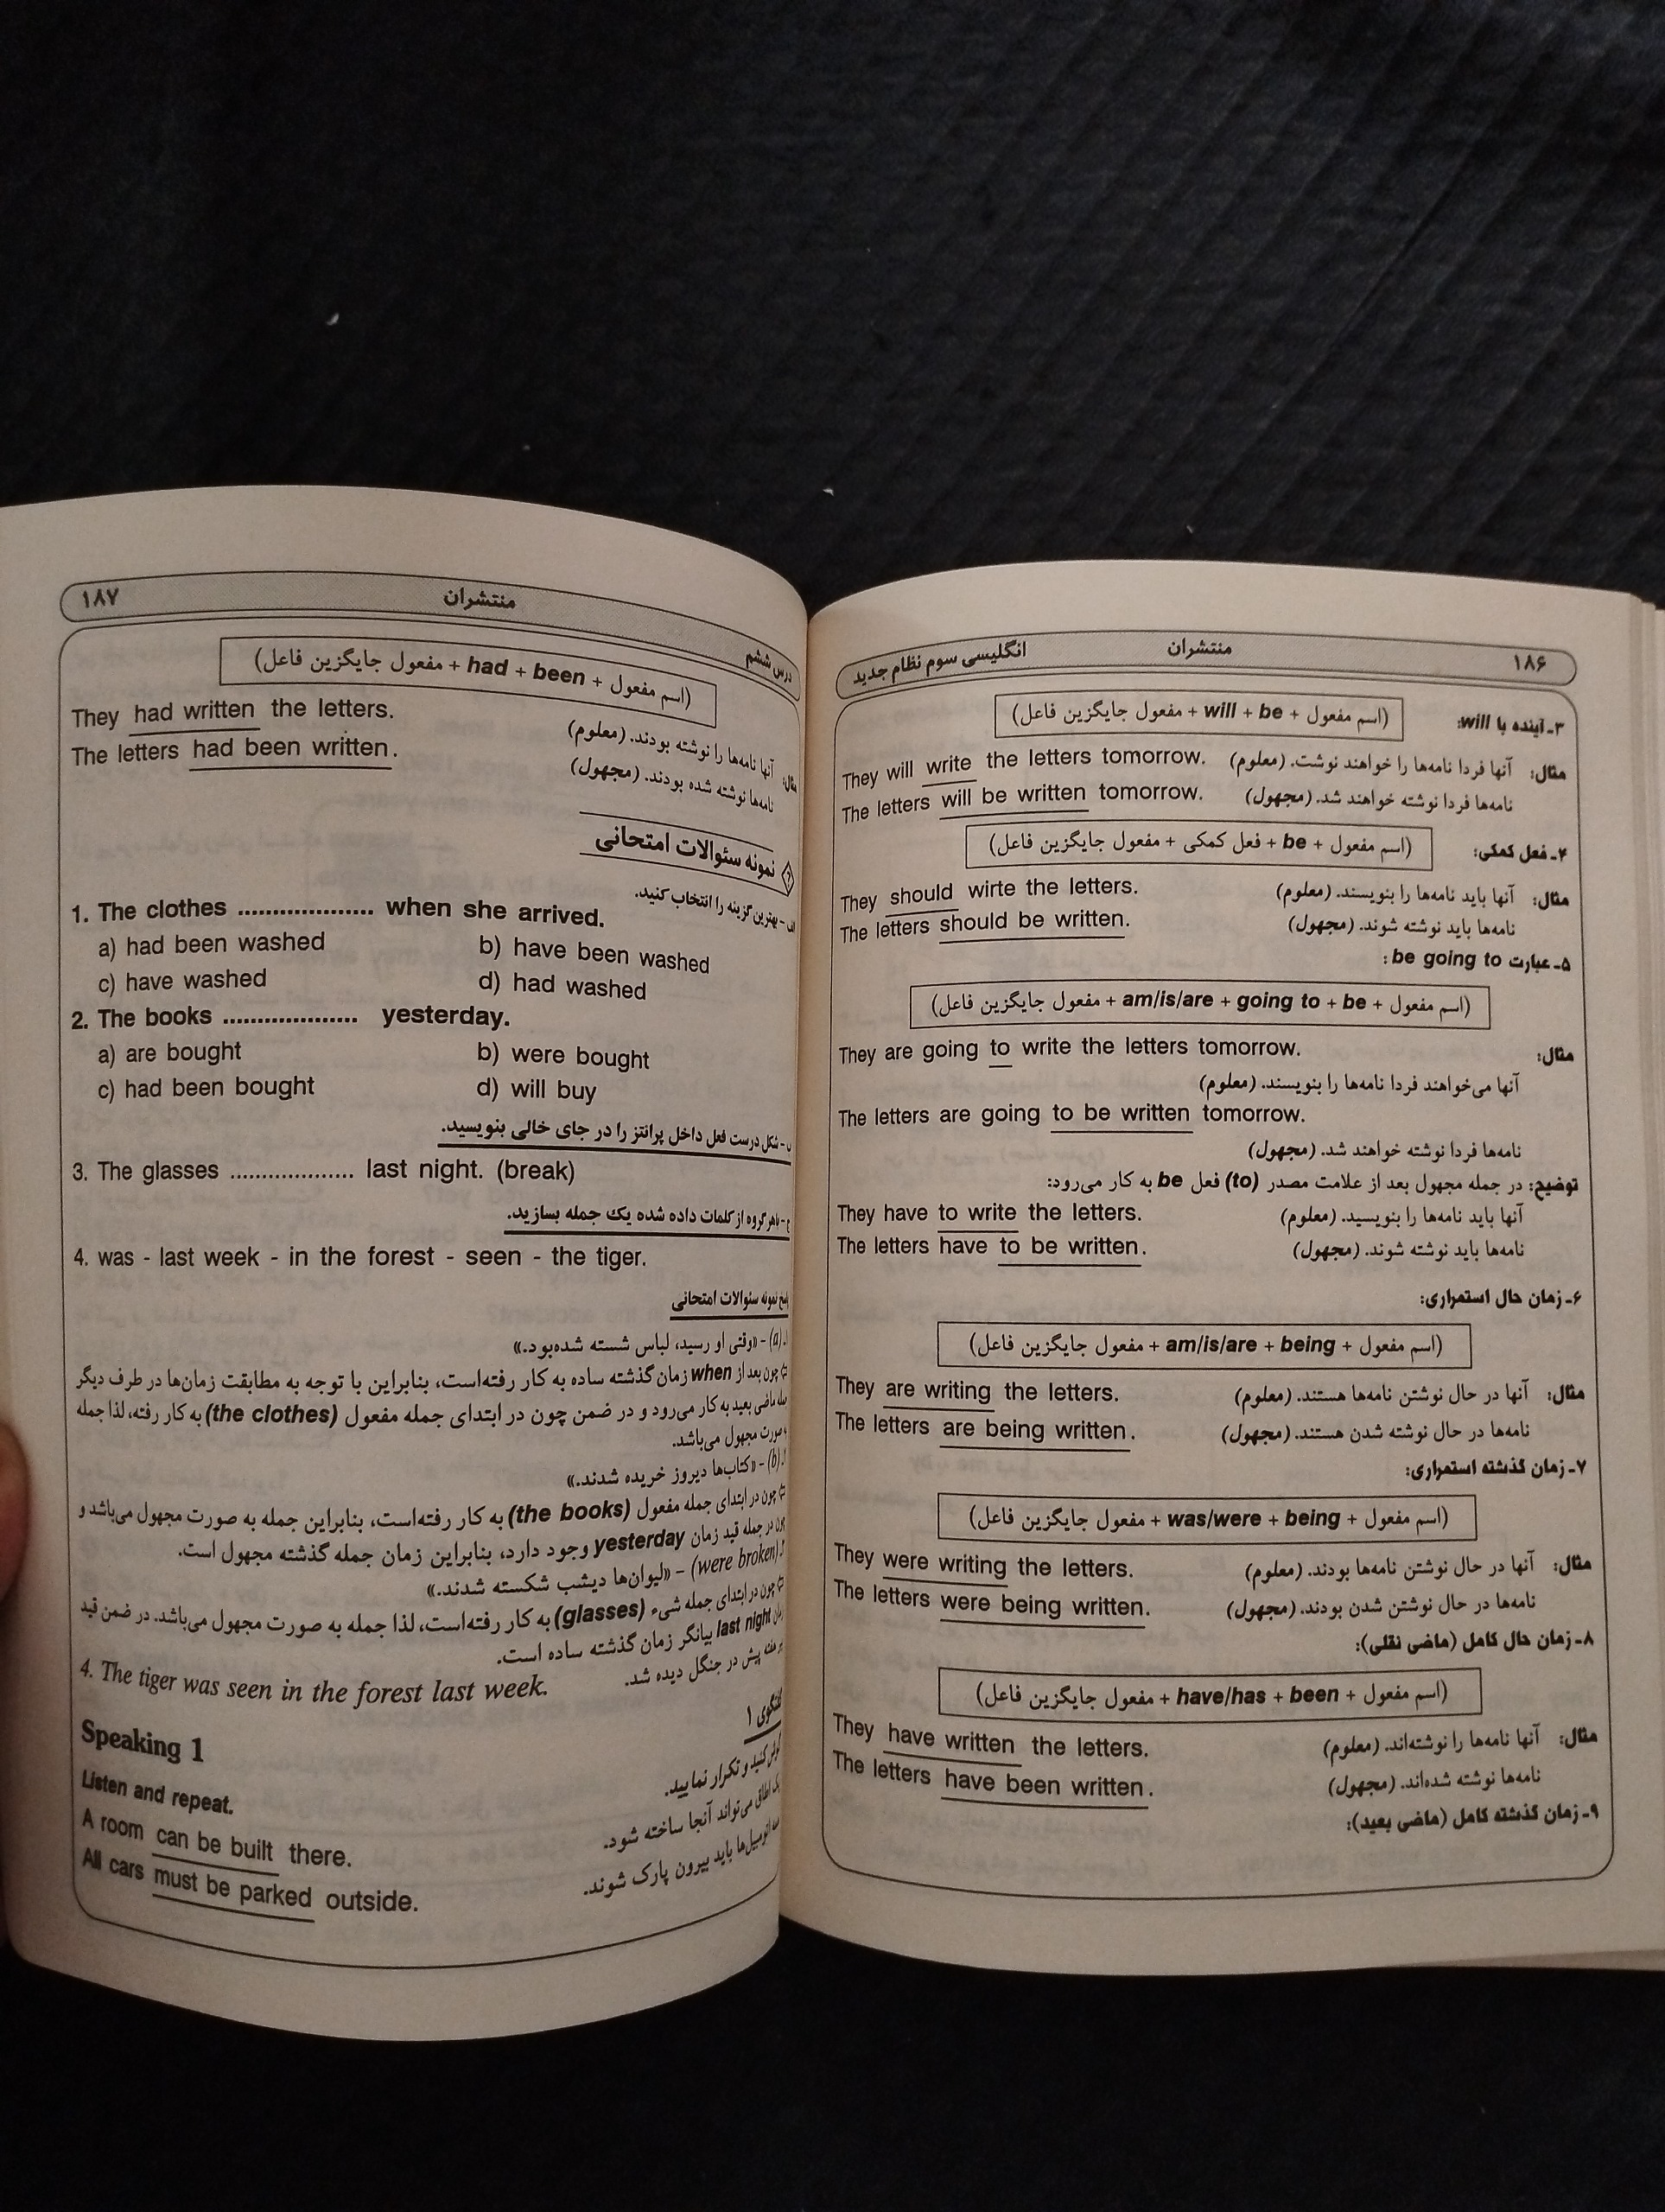 ۱۸۶ منتشران انگلیسی سوم نظام جدید
۳ـ آینده با will:
(اسم مفعول + will + be + مفعول جایگزین فاعل)
مثال: آنها فردا نامه‌ها را خواهند نوشت. (معلوم) They will write the letters tomorrow.
نامه‌ها فردا نوشته خواهند شد. (مجهول) The letters will be written tomorrow.
۴ـ فعل کمکی:
(اسم مفعول + be + فعل کمکی + مفعول جایگزین فاعل)
مثال: آنها باید نامه‌ها را بنویسند. (معلوم) They should wirte the letters.
نامه‌ها باید نوشته شوند. (مجهول) The letters should be written.
۵ـ عبارت be going to :
(اسم مفعول + am/is/are + going to + be + مفعول جایگزین فاعل)
مثال: They are going to write the letters tomorrow.
آنها می‌خواهند فردا نامه‌ها را بنویسند. (معلوم)
The letters are going to be written tomorrow.
نامه‌ها فردا نوشته خواهند شد. (مجهول)
توضیح: در جمله مجهول بعد از علامت مصدر (to) فعل be به کار می‌رود:
آنها باید نامه‌ها را بنویسید. (معلوم) They have to write the letters.
نامه‌ها باید نوشته شوند. (مجهول) The letters have to be written.
۶ـ زمان حال استمراری:
(اسم مفعول + am/is/are + being + مفعول جایگزین فاعل)
مثال: آنها در حال نوشتن نامه‌ها هستند. (معلوم) They are writing the letters.
نامه‌ها در حال نوشته شدن هستند. (مجهول) The letters are being written.
۷ـ زمان گذشته استمراری:
(اسم مفعول + was/were + being + مفعول جایگزین فاعل)
مثال: آنها در حال نوشتن نامه‌ها بودند. (معلوم) They were writing the letters.
نامه‌ها در حال نوشتن شدن بودند. (مجهول) The letters were being written.
۸ـ زمان حال کامل (ماضی نقلی):
(اسم مفعول + have/has + been + مفعول جایگزین فاعل)
مثال: آنها نامه‌ها را نوشته‌اند. (معلوم) They have written the letters.
نامه‌ها نوشته شده‌اند. (مجهول) The letters have been written.
۹ـ زمان گذشته کامل (ماضی بعید):
درس ششم منتشران ۱۸۷
(اسم مفعول + had + been + مفعول جایگزین فاعل)
مثال: آنها نامه‌ها را نوشته بودند. (معلوم) They had written the letters.
نامه‌ها نوشته شده بودند. (مجهول) The letters had been written.
نمونه سئوالات امتحانی
بهترین گزینه را انتخاب کنید.
1. The clothes .................... when she arrived.
a) had been washed b) have been washed
c) have washed d) had washed
2. The books .................... yesterday.
a) are bought b) were bought
c) had been bought d) will buy
شکل درست فعل داخل پرانتز را در جای خالی بنویسید.
3. The glasses ................... last night. (break)
با هر گروه از کلمات داده شده یک جمله بسازید.
4. was - last week - in the forest - seen - the tiger.
پاسخ نمونه سئوالات امتحانی
(a) – «وقتی او رسید، لباس شسته شده‌بود.»
چون بعد از when زمان گذشته ساده به کار رفته‌است، بنابراین با توجه به مطابقت زمان‌ها در طرف دیگر
ماضی بعید به کار می‌رود و در ضمن چون در ابتدای جمله مفعول (the clothes) به کار رفته، لذا جمله
صورت مجهول می‌باشد.
(b) – «کتاب‌ها دیروز خریده شدند.»
چون در ابتدای جمله مفعول (the books) به کار رفته‌است، بنابراین جمله به صورت مجهول می‌باشد و
در جمله قید زمان yesterday وجود دارد، بنابراین زمان جمله گذشته مجهول است.
(were broken) – «لیوان‌ها دیشب شکسته شدند.»
چون در ابتدای جمله شیء (glasses) به کار رفته‌است، لذا جمله به صورت مجهول می‌باشد. در ضمن قید
last night بیانگر زمان گذشته ساده است.
4. The tiger was seen in the forest last week. هفته پیش در جنگل دیده شد.
Speaking 1 گفتگوی ۱
Listen and repeat. گوش کنید و تکرار نمایید.
A room can be built there. یک اطاق می‌تواند آنجا ساخته شود.
All cars must be parked outside. اتومبیل‌ها باید بیرون پارک شوند.